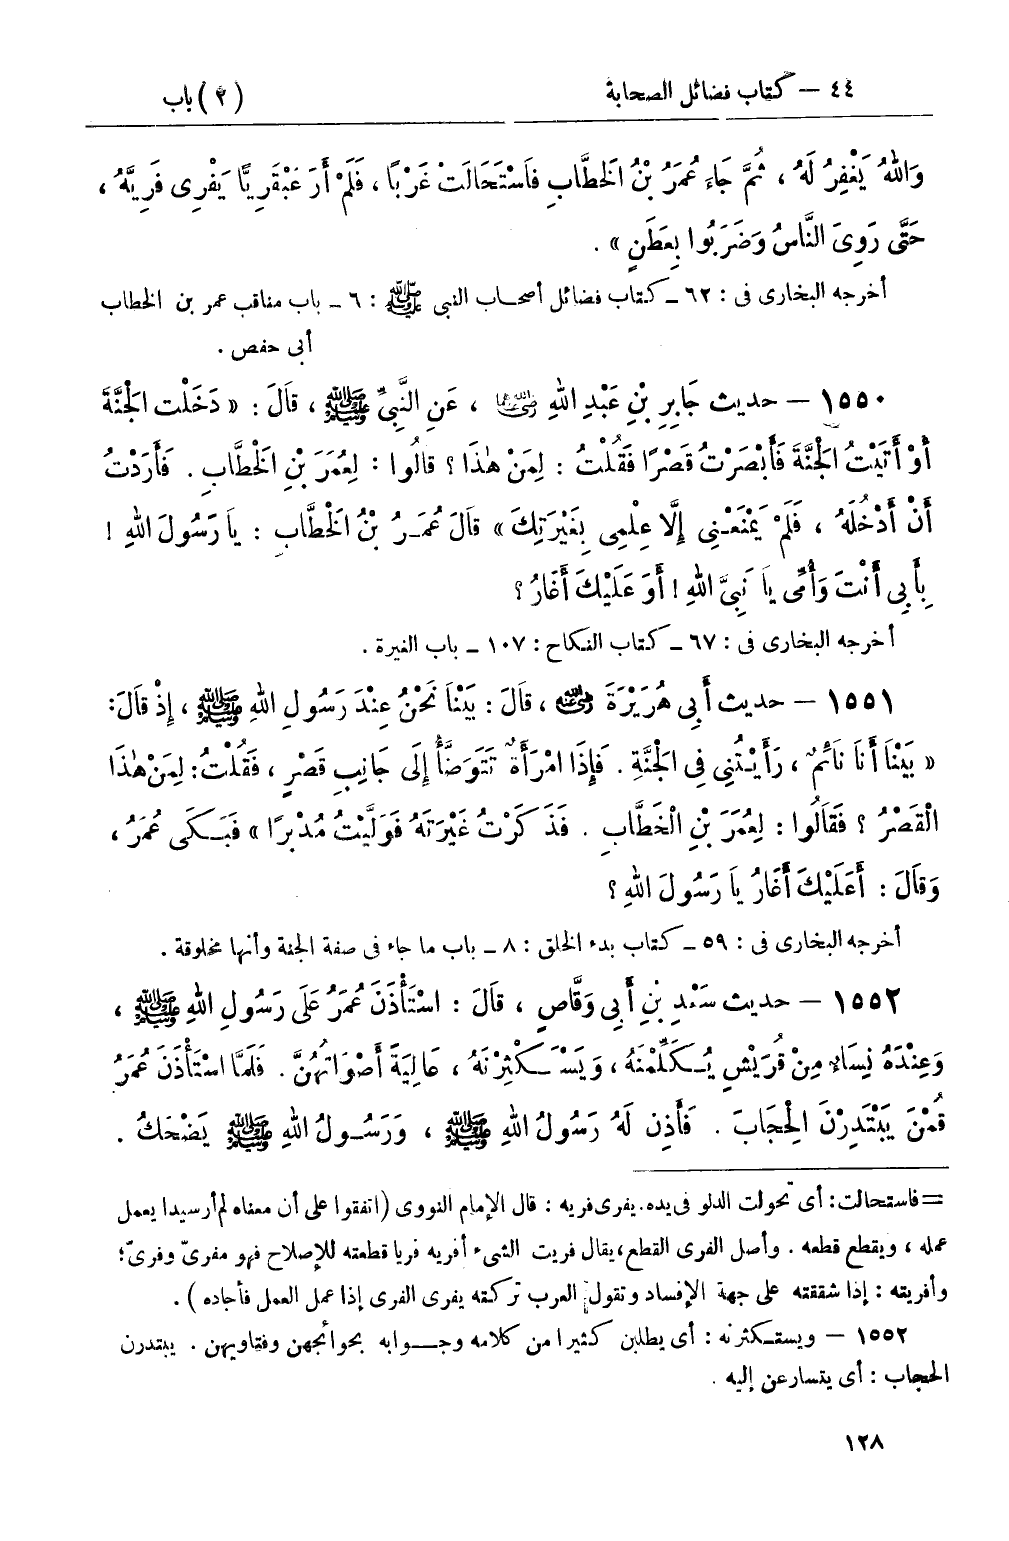 ٤٤ – كتاب فضائل الصحابة
(٢) باب
وَاللهُ يَغْفِرُ لَهُ ، ثُمَّ جَاءَ عُمَرُ بْنُ الخَطَّابِ فَاسْتَحَالَتْ غَرْبًا ، فَلَمْ أَرَ عَبْقَرِيًّا يَفْرِى فَرِيَّهُ ،
حَتَّى رَوِىَ النَّاسُ وَضَرَبُوا بِعَطَنٍ » .
أخرجه البخارى فى : ٦٢ ـ كتاب فضائل أصحاب النبى ﷺ : ٦ ـ باب مناقب عمر بن الخطاب
أبى حفص .
١٥٥٠ – حديث جَابِرِ بْنِ عَبْدِ اللهِ رضي الله عنهما ، عَنِ النَّبِىِّ ﷺ ، قَالَ : « دَخَلْت الجَنَّةَ
أَوْ أَتَيْتُ الجَنَّةَ فَأَبْصَرْتُ قَصْرًا فَقُلْتُ : لِمَنْ هٰذَا ؟ قالُوا : لِعُمَرَ بْنِ الخَطَّابِ . فَأَرَدْتُ
أَنْ أَدْخُلَهُ ، فَلَمْ يَمْنَعْنِى إِلَّا عِلْمِى بِغَيْرَتِكَ » قَالَ عُمَرُ بْنُ الْخَطَّابِ : يا رَسُولَ اللهِ !
بِأَبِى أَنْتَ وَأُمِّى يا نَبِىَّ اللهِ ! أَوَ عَلَيْكَ أَغَارُ ؟
أخرجه البخارى فى : ٦٧ ـ كتاب النكاح : ١٠٧ ـ باب الغيرة .
١٥٥١ – حديث أَبِى هُرَيْرَةَ رضي الله عنه ، قَالَ : بَيْنَا نَحْنُ عِنْدَ رَسُولِ اللهِ ﷺ ، إِذْ قَالَ :
« بَيْنَا أَنَا نَائِمٌ ، رَأَيْتُنِى فِى الجَنَّةِ . فَإِذَا امْرَأَةٌ تَتَوَضَّأُ إِلَى جَانِبِ قَصْرٍ ، فَقُلْتُ : لِمَنْ هٰذَا
الْقَصْرُ ؟ فَقَالُوا : لِعُمَرَ بْنِ الْخَطَّابِ . فَذَكَرْتُ غَيْرَتَهُ فَوَلَّيْتُ مُدْبِرًا » فَبَكَى عُمَرُ ،
وَقَالَ : أَعَلَيْكَ أَغَارُ يَا رَسُولَ اللهِ ؟
أخرجه البخارى فى : ٥٩ ـ كتاب بدء الخلق : ٨ ـ باب ما جاء فى صفة الجنة وأنها مخلوقة .
١٥٥٢ – حديث سَعْدِ بْنِ أَبِى وَقَّاصٍ ، قَالَ : اسْتَأْذَنَ عُمَرُ عَلَى رَسُولِ اللهِ ﷺ ،
وَعِنْدَهُ نِسَاءٌ مِنْ قُرَيْشٍ يُكَلِّمْنَهُ ، وَيَسْتَكْثِرْنَهُ ، عَالِيَةً أَصْوَاتُهُنَّ . فَلَمَّا اسْتَأْذَنَ عُمَرُ
قُمْنَ يَبْتَدِرْنَ الْحِجَابَ . فَأَذِنَ لَهُ رَسُولُ اللهِ ﷺ ، وَرَسُولُ اللهِ ﷺ يَضْحَكُ .
= فاستحالت : أى تحولت الدلو فى يده . يفرى فريه : قال الإمام النووى (اتفقوا على أن معناه لم أر سيدا يعمل
عمله ، ويقطع قطعه . وأصل الفرى القطع ، يقال فريت الشىء أفريه فريا قطعته للإصلاح فهو مفرىّ وفرىّ ؛
وأفريته : إذا شققته على جهة الإفساد وتقول العرب تركته يفرى الفرى إذا عمل العمل فأجاده ) .
١٥٥٢ – ويستكثرنه : أى يطلبن كثيرا من كلامه وجوابه بحوائجهن وفتاويهن . يبتدرن
الحجاب : أى يتسارعن إليه .
١٢٨